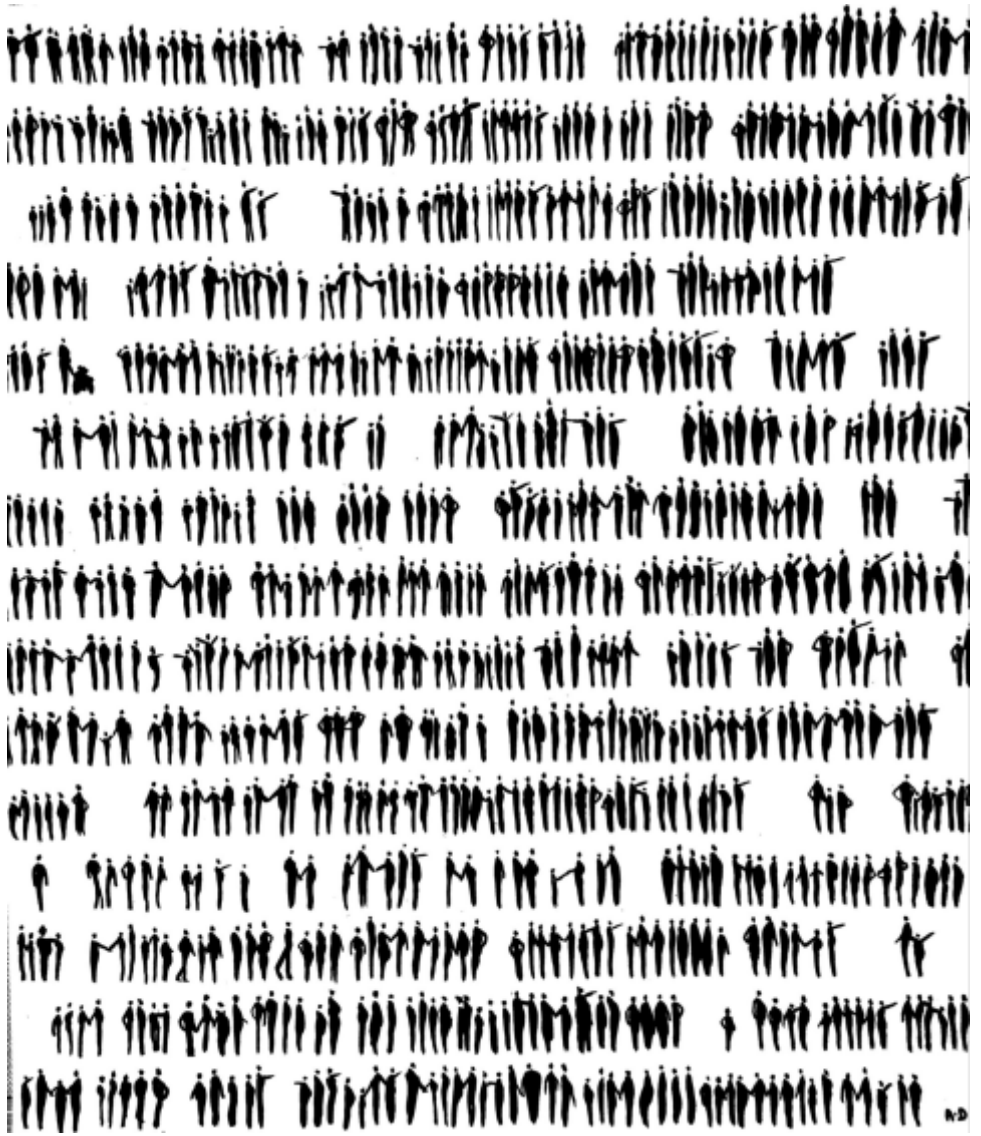 A·D